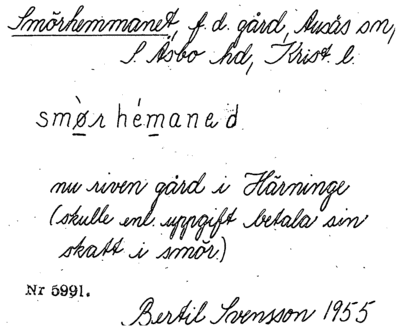 Smörhemmanet, f.d. gård, Ausås sn,
S. Åsbo hd, Krist. l.
smø̀r hémaned
nu riven gård i Härninge
(skulle enl. uppgift betala sin
skatt i smör.)
Nr 5991.
Bertil Svensson 1955